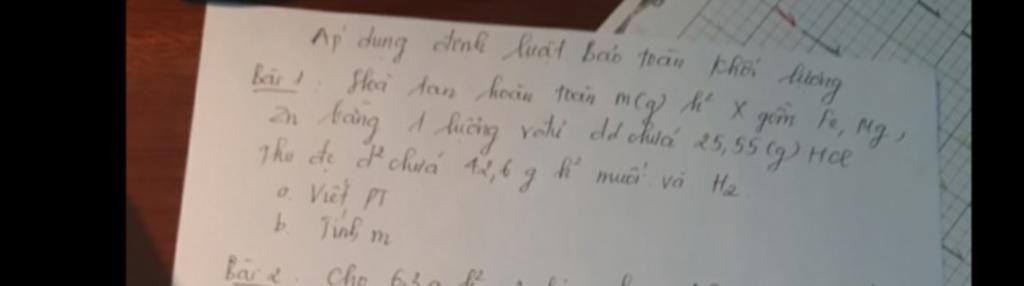 Áp dụng định luật bảo toàn khối lượng
Bài 1: Hoà tan hoàn toàn m(g) h² X gồm Fe, Mg,
Zn bằng 1 lượng vđủ dd chứa 25,55(g) HCl
Thu đc d² chứa 42,6 g h² muối và H₂
a. Viết PT
b. Tính m
Bài 2. Cho 6,3 g h²